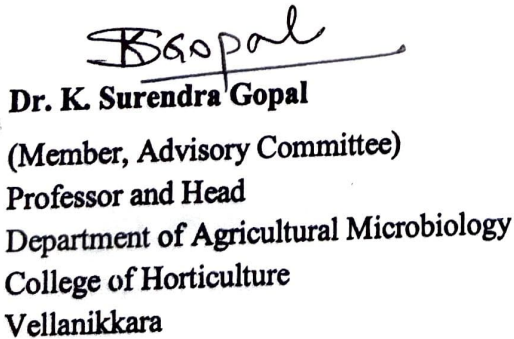 KSGopal
Dr. K. Surendra Gopal
(Member, Advisory Committee)
Professor and Head
Department of Agricultural Microbiology
College of Horticulture
Vellanikkara